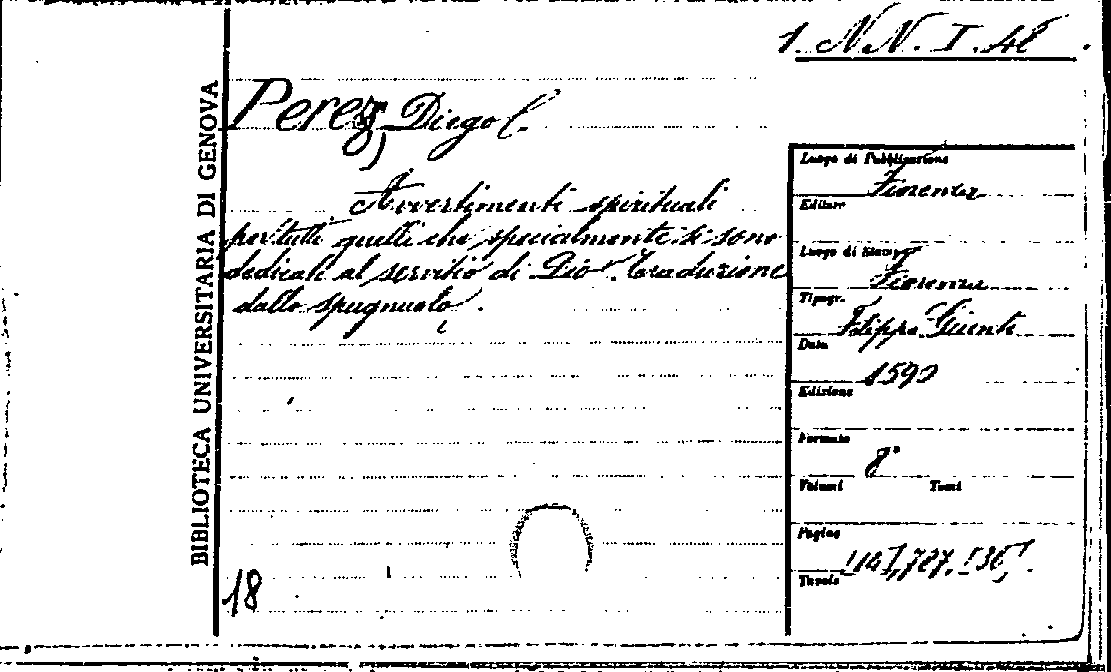 1. NN. I. 48.
BIBLIOTECA UNIVERSITARIA DI GENOVA
Perez, Diego
Avvertimenti spirituali
per tutti quelli che specialmente si sono
dedicati al servitio di Dio. Traduzione
dallo spagnuolo.
18
Luogo di Pubblicazione
Fiorenza
Editore
Luogo di Stampa
Fiorenza
Tipogr.
Filippo Giunti
Data
1590
Edizione
Formato
8°
Volumi Tomi
Pagine
Tavole